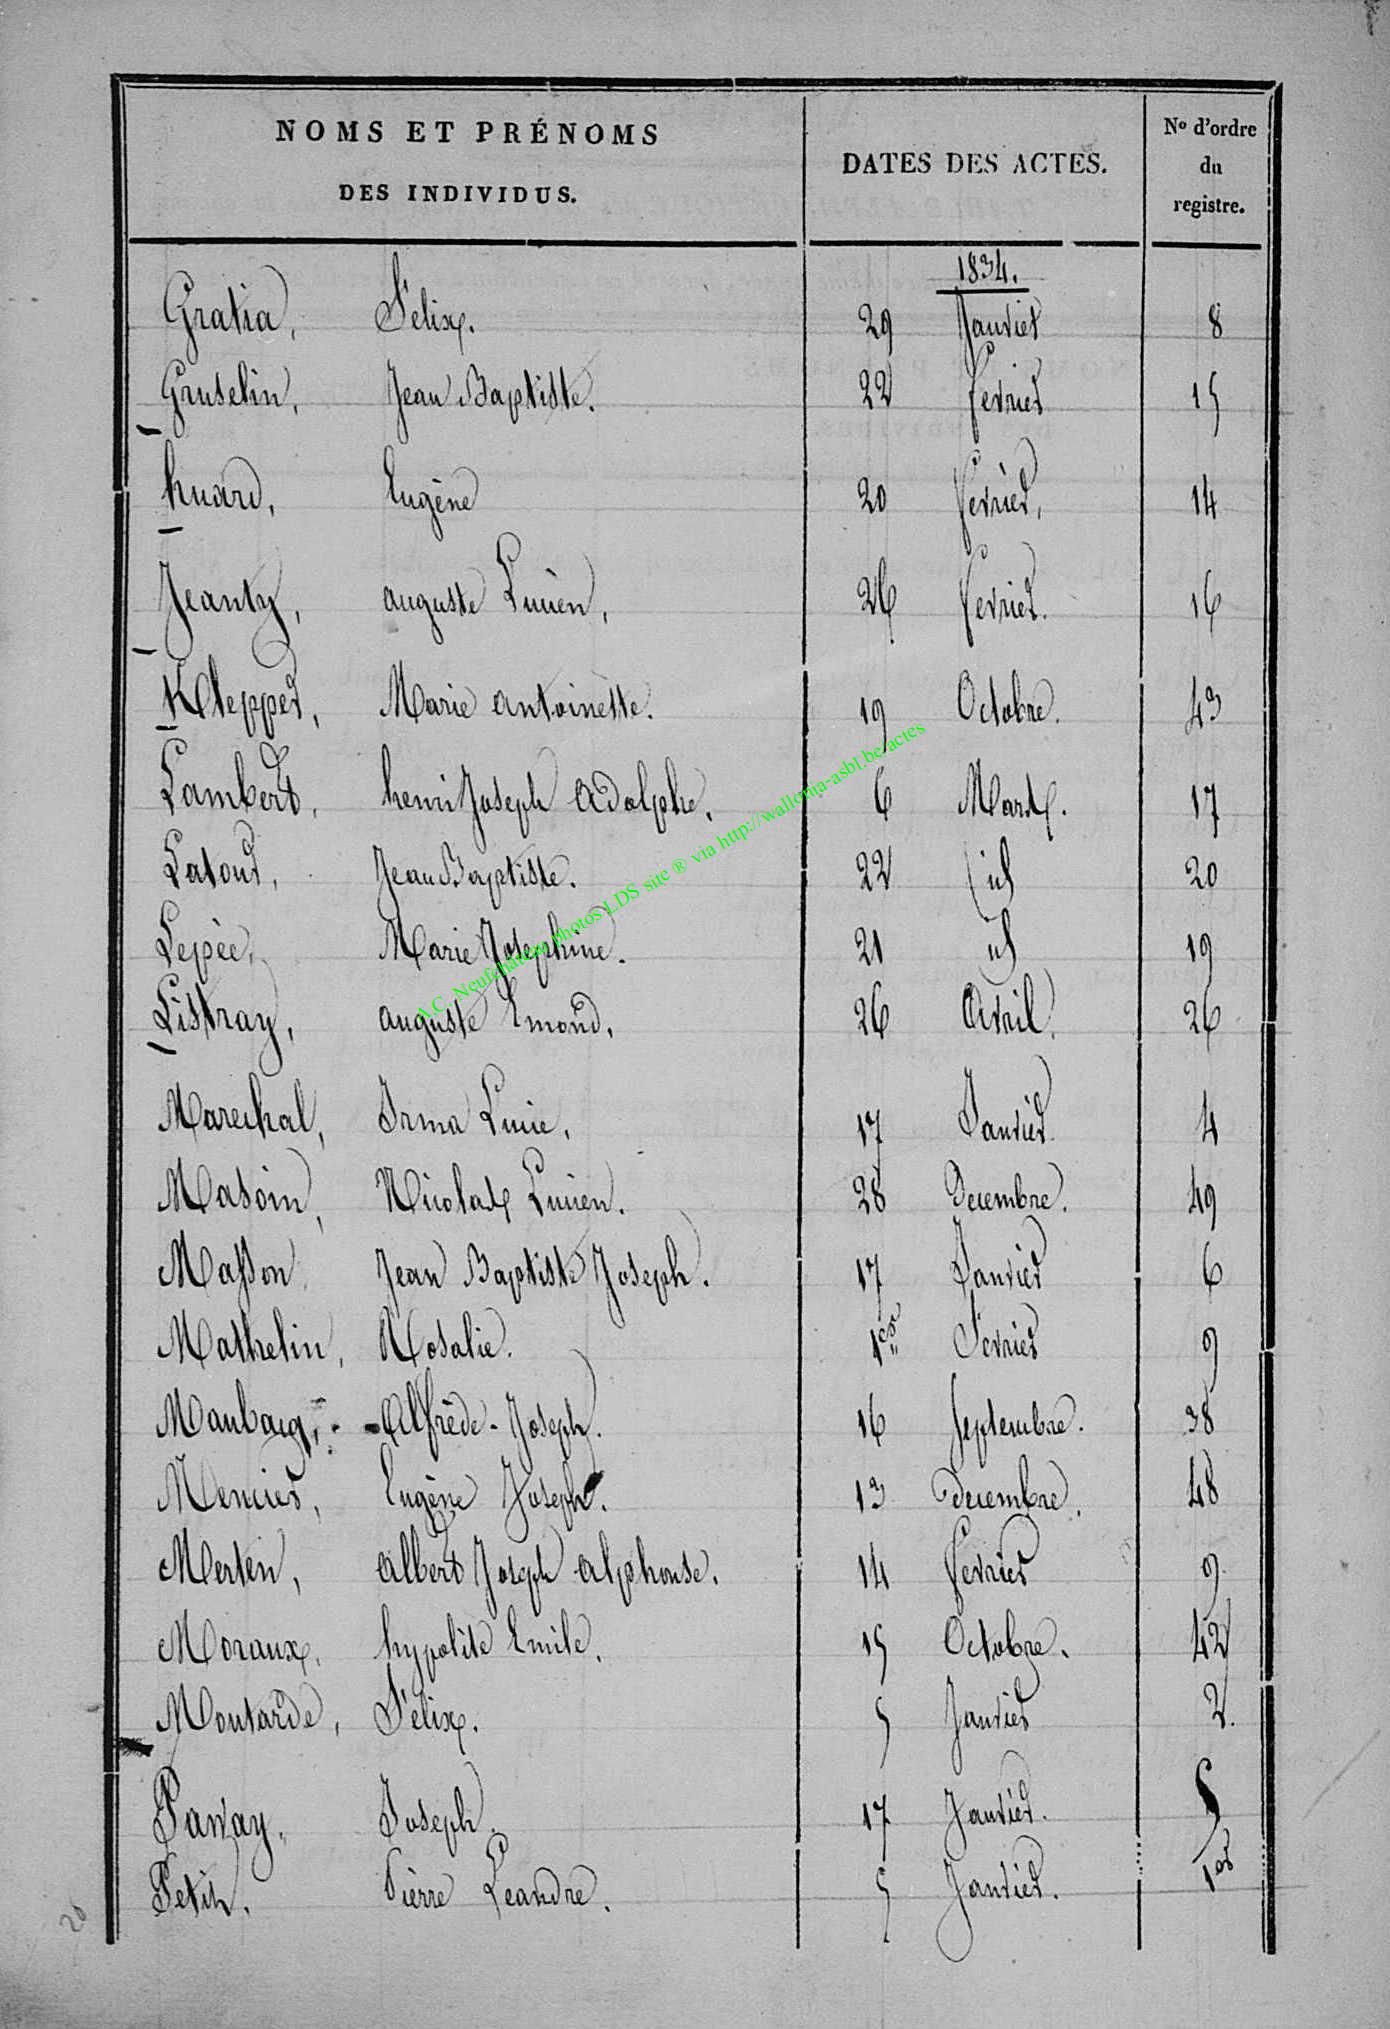 NOMS ET PRÉNOMS
DES INDIVIDUS.
DATES DES ACTES.
No d'ordre
du
registre.
1834.
Gratia, Félix. 29 Janvier 8
Gruselin, Jean Baptiste. 22 fevrier 15
huard, Eugène 20 fevrier, 14
Jeanty, auguste Lucien, 26 fevrier. 16
Klepper, Marie antoinette. 19 Octobre. 43
Lambert, henri Joseph Adolphe, 6 Mars. 17
Latour, Jean Baptiste. 22 id 20
Lepée, Marie Josephine. 21 id 19
Listray, auguste Emond, 26 Avril. 26
Marechal, Irma Lucie, 17 Janvier 4
Masoin, Nicolas Lucien. 28 Decembre. 49
Masson Jean Baptiste Joseph. 17 Janvier 6
Mathelin, Rosalie. 1er Fevrier 9
Maubacq, Alfrède-Joseph. 16 Septembre. 38
Eugène Joseph. 13 decembre. 48
Merten, albert Joseph alphonse. 14 fevrier 9
Moraux, hypolite Emile, 15 Octobre. 42
Moutarde, Félix. 5 Janvier 2.
Joseph. 17 Janvier. 5
Petit, Pierre Leandre. 5 Janvier. 1er
20
A.C. Neufchâteau photos LDS site ® via http://wallonia-asbl.be/actes